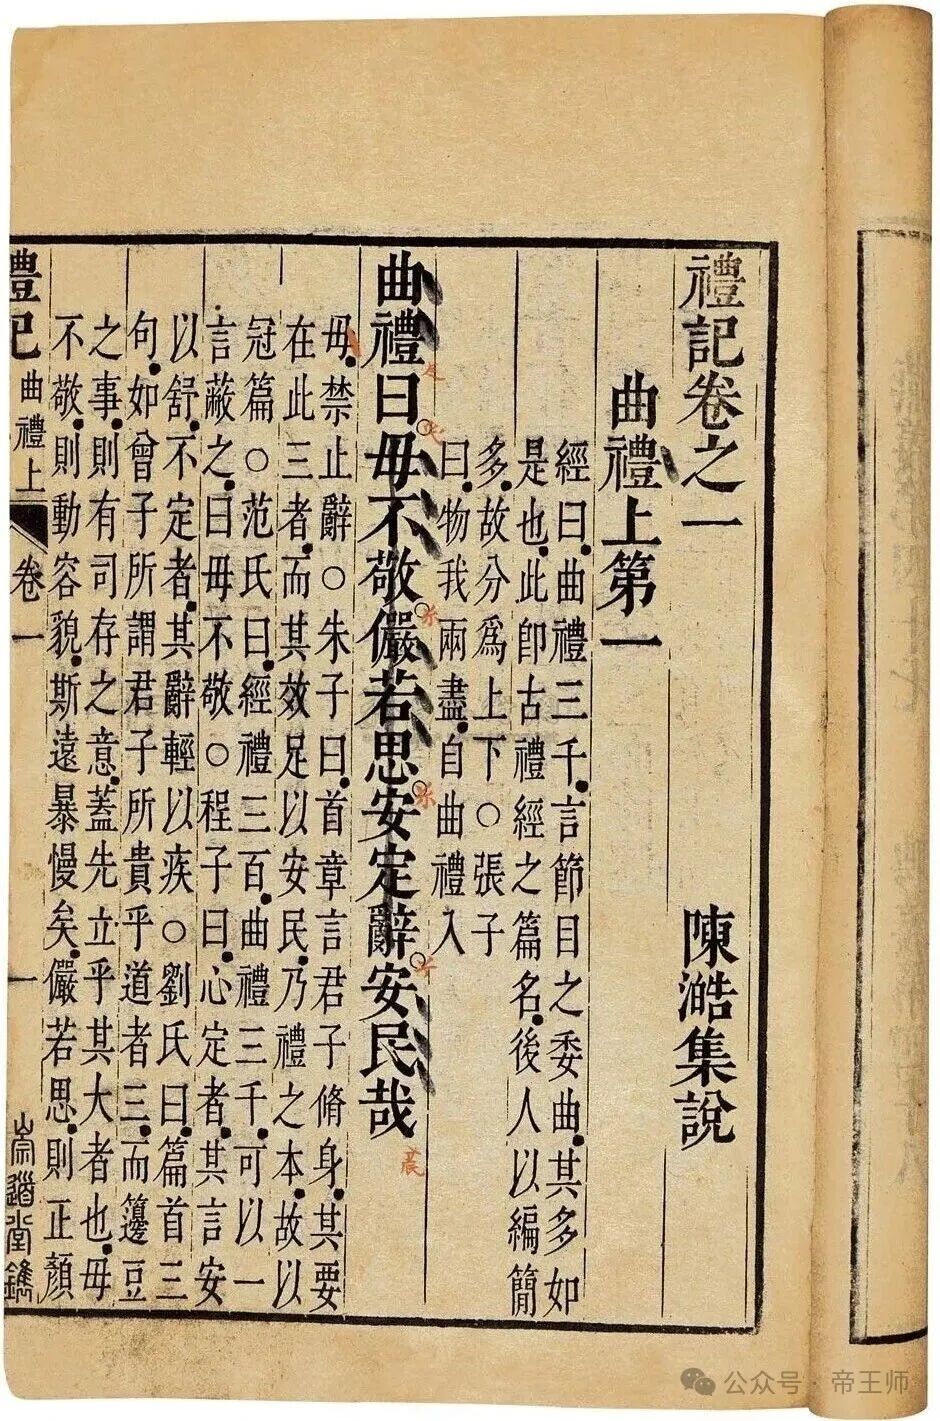 禮記卷之一
陳澔集說
曲禮上第一
經曰曲禮三千言節目之委曲其多如
是也此卽古禮經之篇名後人以編簡
多故分爲上下○張子
曰物我兩盡自曲禮入
曲禮曰毋不敬儼若思安定辭安民哉
毋禁止辭○朱子曰首章言君子脩身其要
在此三者而其效足以安民乃禮之本故以
冠篇○范氏曰經禮三百曲禮三千可以一
言蔽之曰毋不敬○程子曰心定者其言安
以舒不定者其辭輕以疾○劉氏曰篇首三
句如曾子所謂君子所貴乎道者三而籩豆
之事則有司存之意蓋先立乎其大者也毋
不敬則動容貌斯遠暴慢矣儼若思則正顏
禮記 曲禮上 卷一 一 崇道堂鐫
公众号 · 帝王师